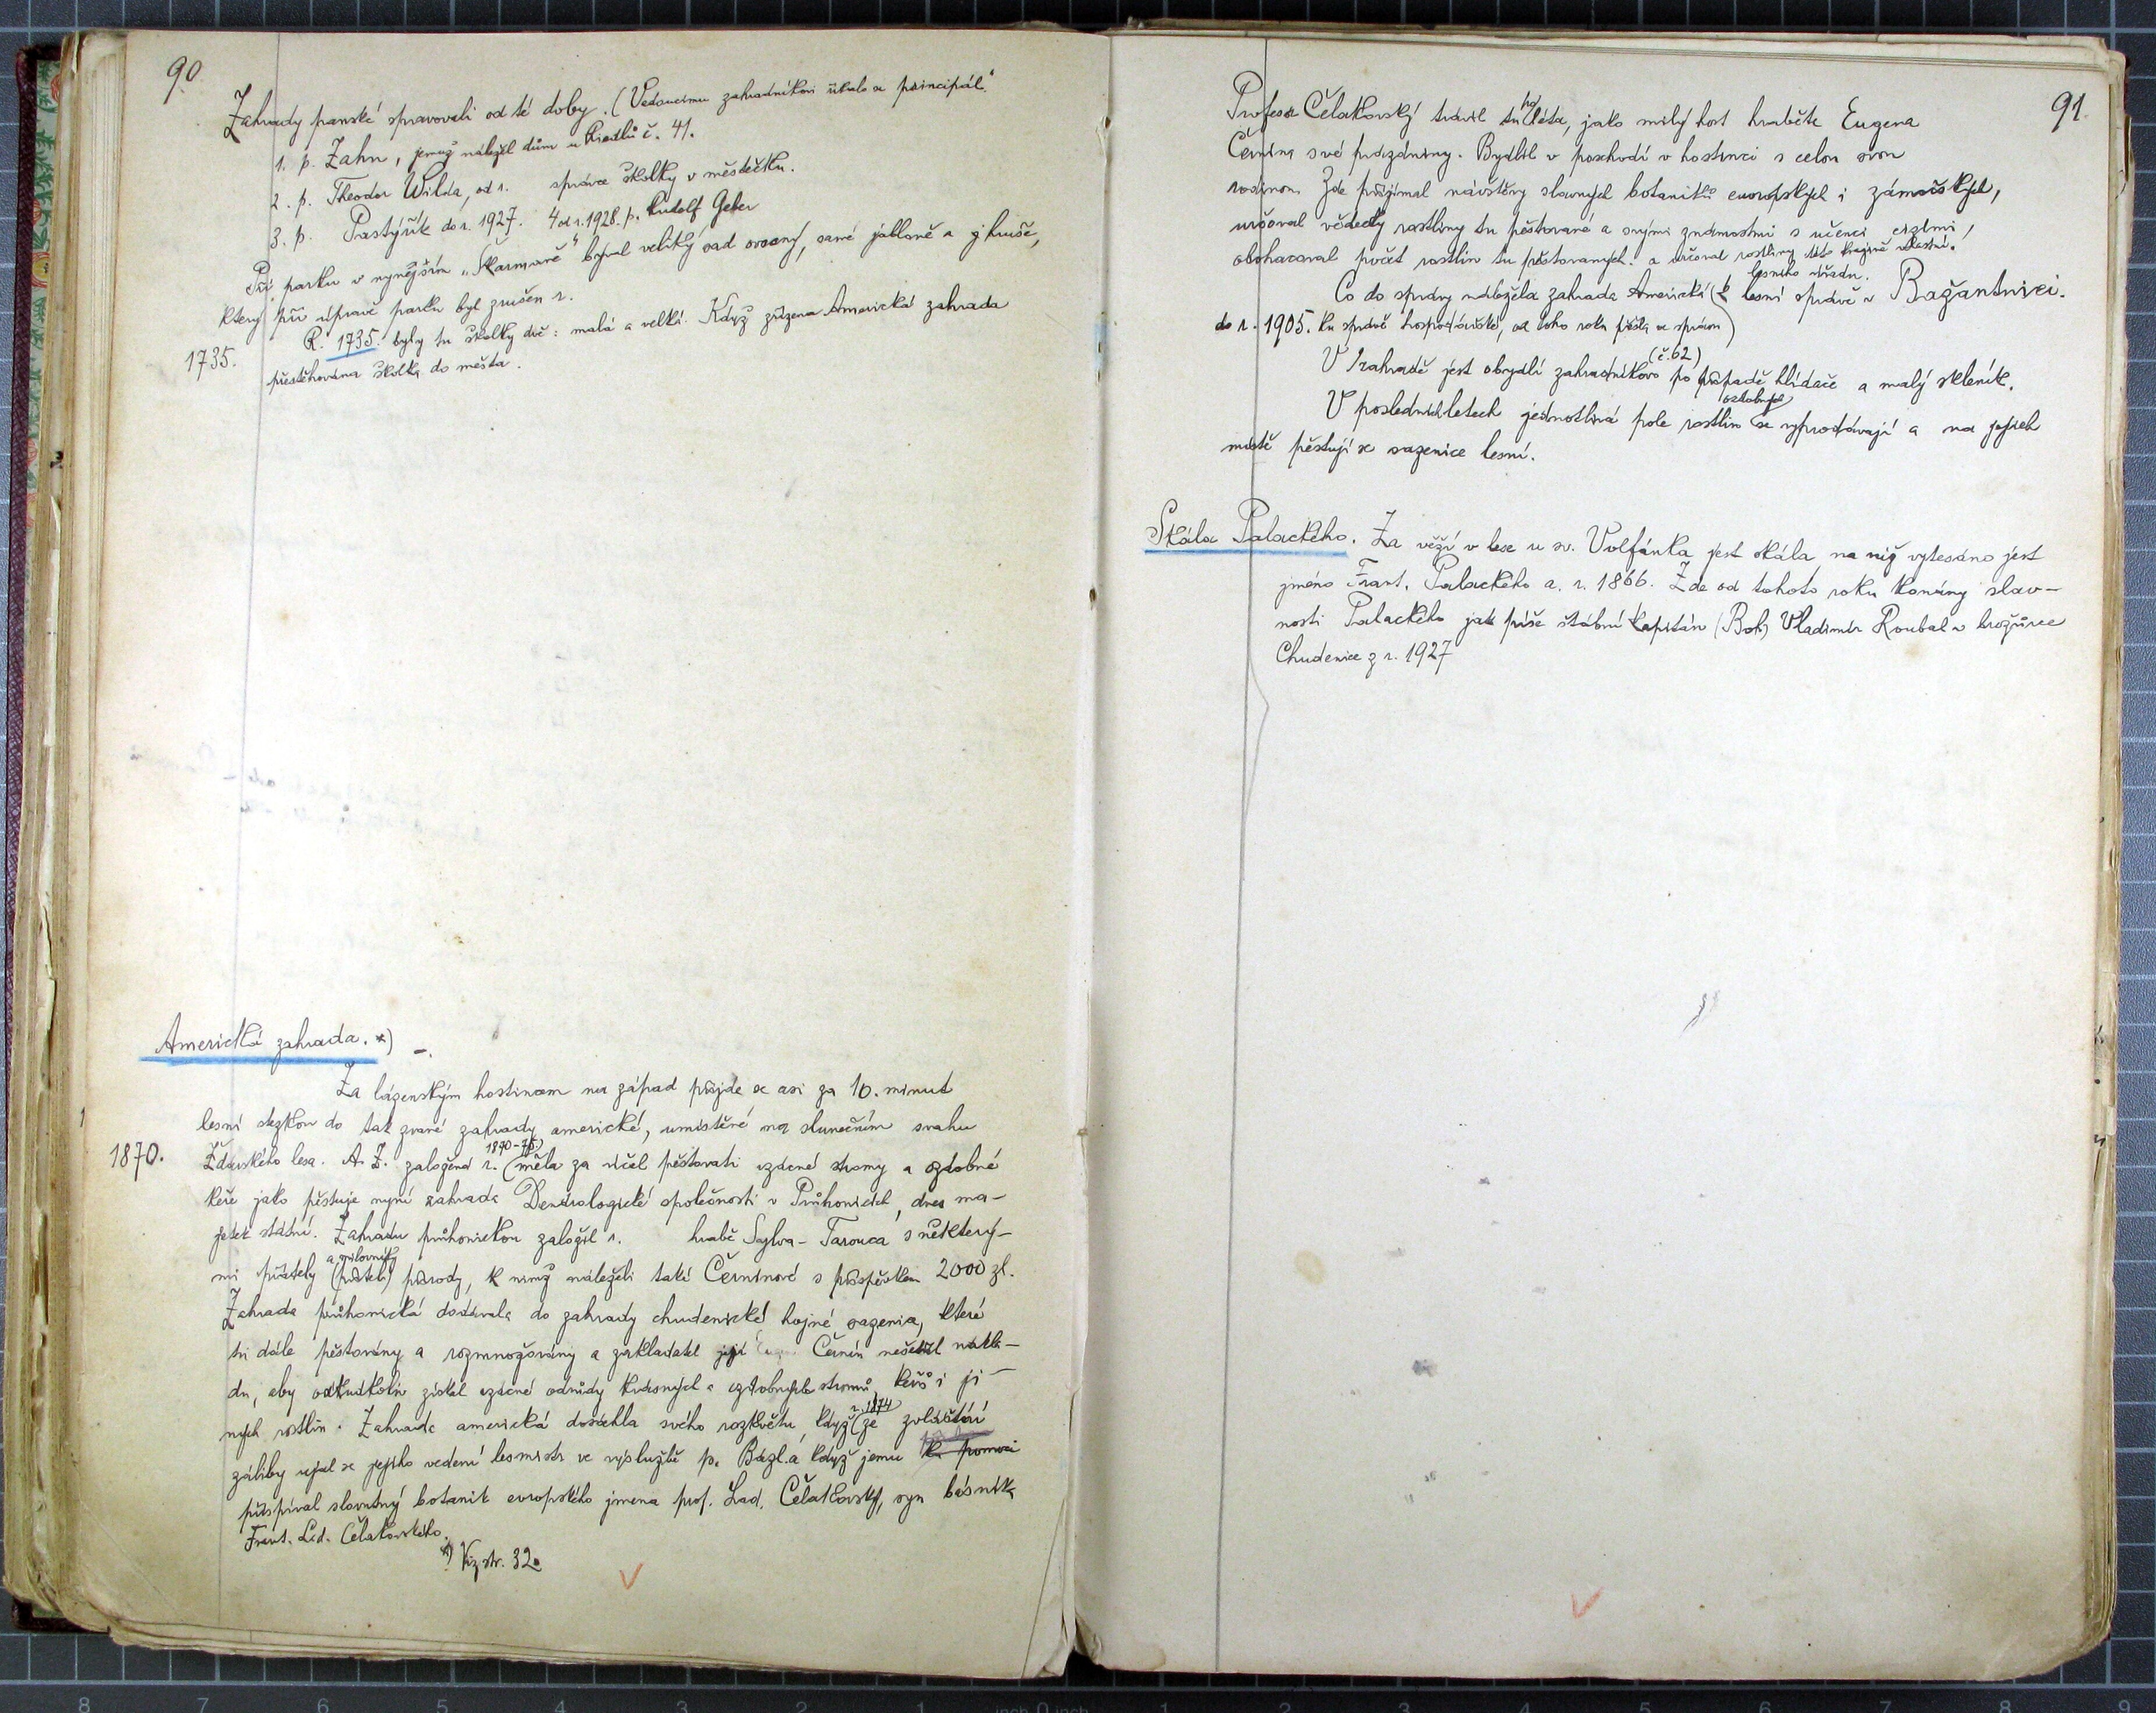 90.
Zahrady panské spravovali od té doby. (Vedoucímu zahradníkovi říkalo se principál."
1. p. Zahn, jemuž náležel dům u Kiedlů č. 41.
2. p. Theodor Wilda, od r. správce školky v městečku.
3. p. Pastýřík do r. 1927. 4 od r. 1928. p. Rudolf Geber
Při parku v nynějším „Škarmaně" býval veliký sad ovocný, samé jabloně a hruše,
který při úpravě parku byl zrušen r.
1735.
R. 1735. byly tu školky dvě: malá a velká. Když zřízena Americká zahrada
přestěhována školka do města.
Americká zahrada. *) -.
Za lázenským hostincem na západ přijde se asi za 10. minut
lesní stezkou do tak zvané zahrady americké, umístěné na slunečním svahu
1870.
Ždárského lesa. A. Z. založená r. (měla za účel pěstovati vzácné stromy a ozdobné
keře jako pěstuje nyní zahrada Dendrologické společnosti v Průhonicích, dnes ma-
jetek státní. Zahradu průhonickou založil r. hrabě Sylva-Tarouca s některý-
mi přátely a milovníky přírody, k nimž náleželi také Černínové s příspěvkem 2000 zl.
Zahrada průhonická dodávala do zahrady chudenické hojné sazenia, které
tu dále pěstovány a rozmnožovány a zakladatel její Černín nešetřil nákla-
du, aby odkudkoliv získal vzácné odrůdy krásných a ozdobných stromů, keřů i ji-
ných rostlin. Zahrada americká dosáhla svého rozkvětu, když (ze r. 1874 zvláštní
záliby ujal se jejího vedení lesmistr ve výslužbě p. Bázl. a když jemu k pomoci
přispíval slovutný botanik evropského jmena prof. Lad. Čelakovský, syn básníka
Frant. Lad. Čelakovského.
*) Viz str. 32.
91.
Profesor Čelakovský trávil tu léta, jako milý host hraběte Eugena
Černína své prázdniny. Bydlil v poschodí v hostinci s celou svou
rodinou. Zde přijímal návštěvy slavných botaniků evropských i zámořských,
určoval vědecky rostliny tu pěstované a svými známostmi s učenci cizími,
obohacoval počet rostlin tu pěstovaných. a určoval rostliny této krajině vlastní.
Co do správy náležela zahrada Americká (k lesní správě v Bažantnici.
lesního úřadu.
do r. 1905. ku správě hospodářské, od toho roku přešla ve správu)
V zahradě jest obydlí zahradníkovo (č. 62) po případě hlídače a malý skleník.
V posledních letech jednotlivá pole rostlin ozdobných se vyprodávají a na jejich
místě pěstují se sazenice lesní.
Skála Palackého. Za věží v lese u sv. Volfánka jest skála, na niž vytesáno jest
jméno Frant. Palackého a. r. 1866. Zde od tohoto roku konány slav-
nosti Palackého jak píše štábní kapitán (Boh) Vladimír Roubal v brožůrce
Chudenice z r. 1927